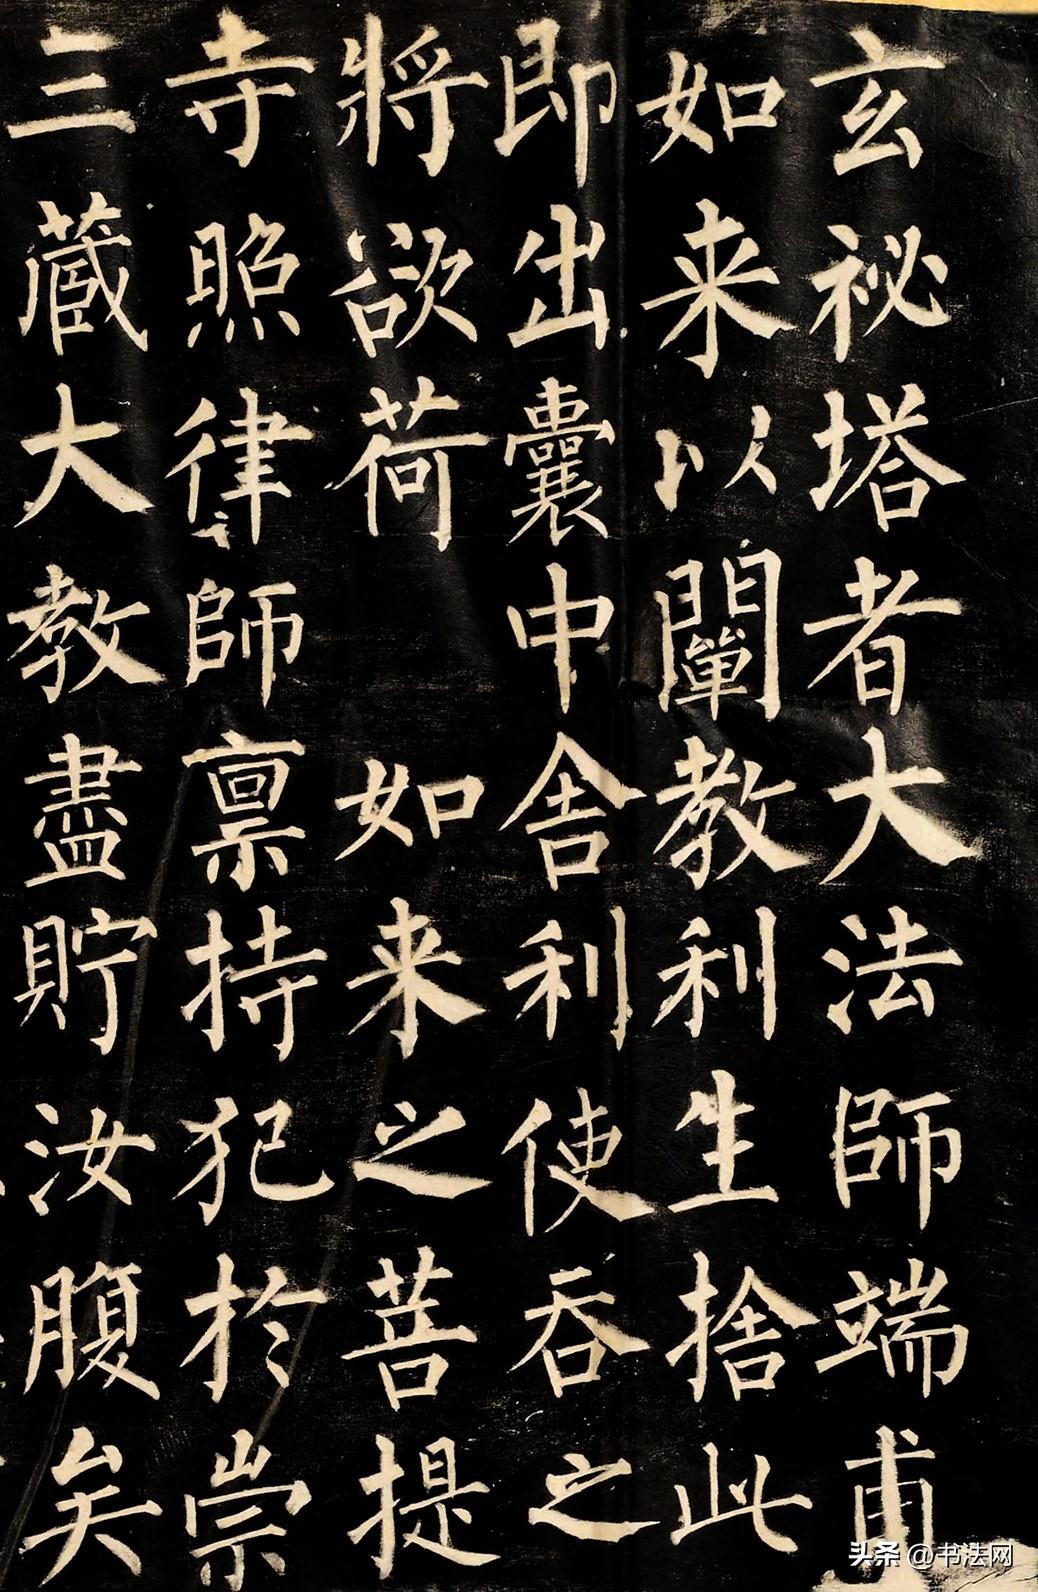 玄祕塔者大法師端甫
如来以闡教利生捨此
即出囊中舎利使吞之
將欲荷 如来之菩提
寺照律師禀持犯於崇
三藏大教盡貯汝腹矣
头条 @书法网